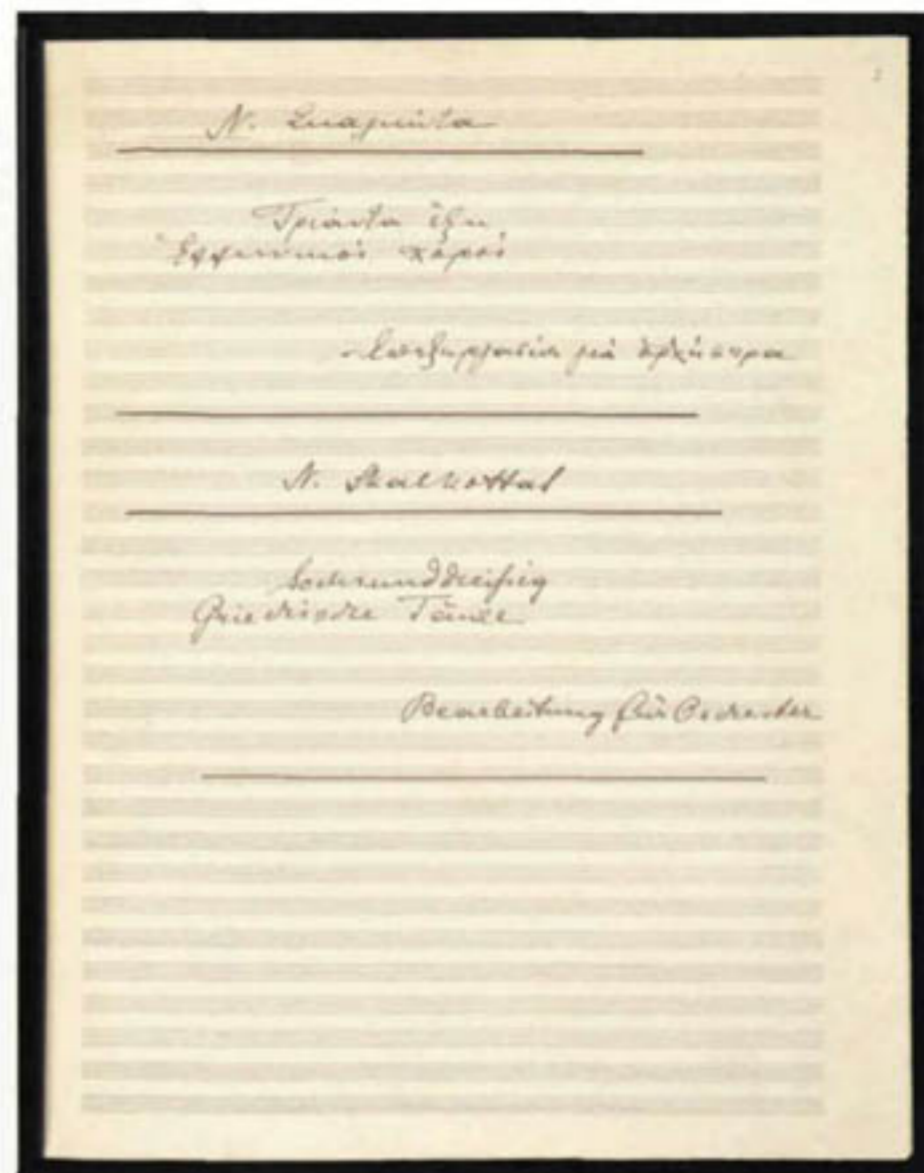 Ν. Σκαλκώτα
Τριάντα έξη
Ἑλληνικοί χοροί
Ἐπεξεργασία γιά ὀρχήστρα
N. Skalkottas
Sechsunddreißig
Griechische Tänze
Bearbeitung für Orchester